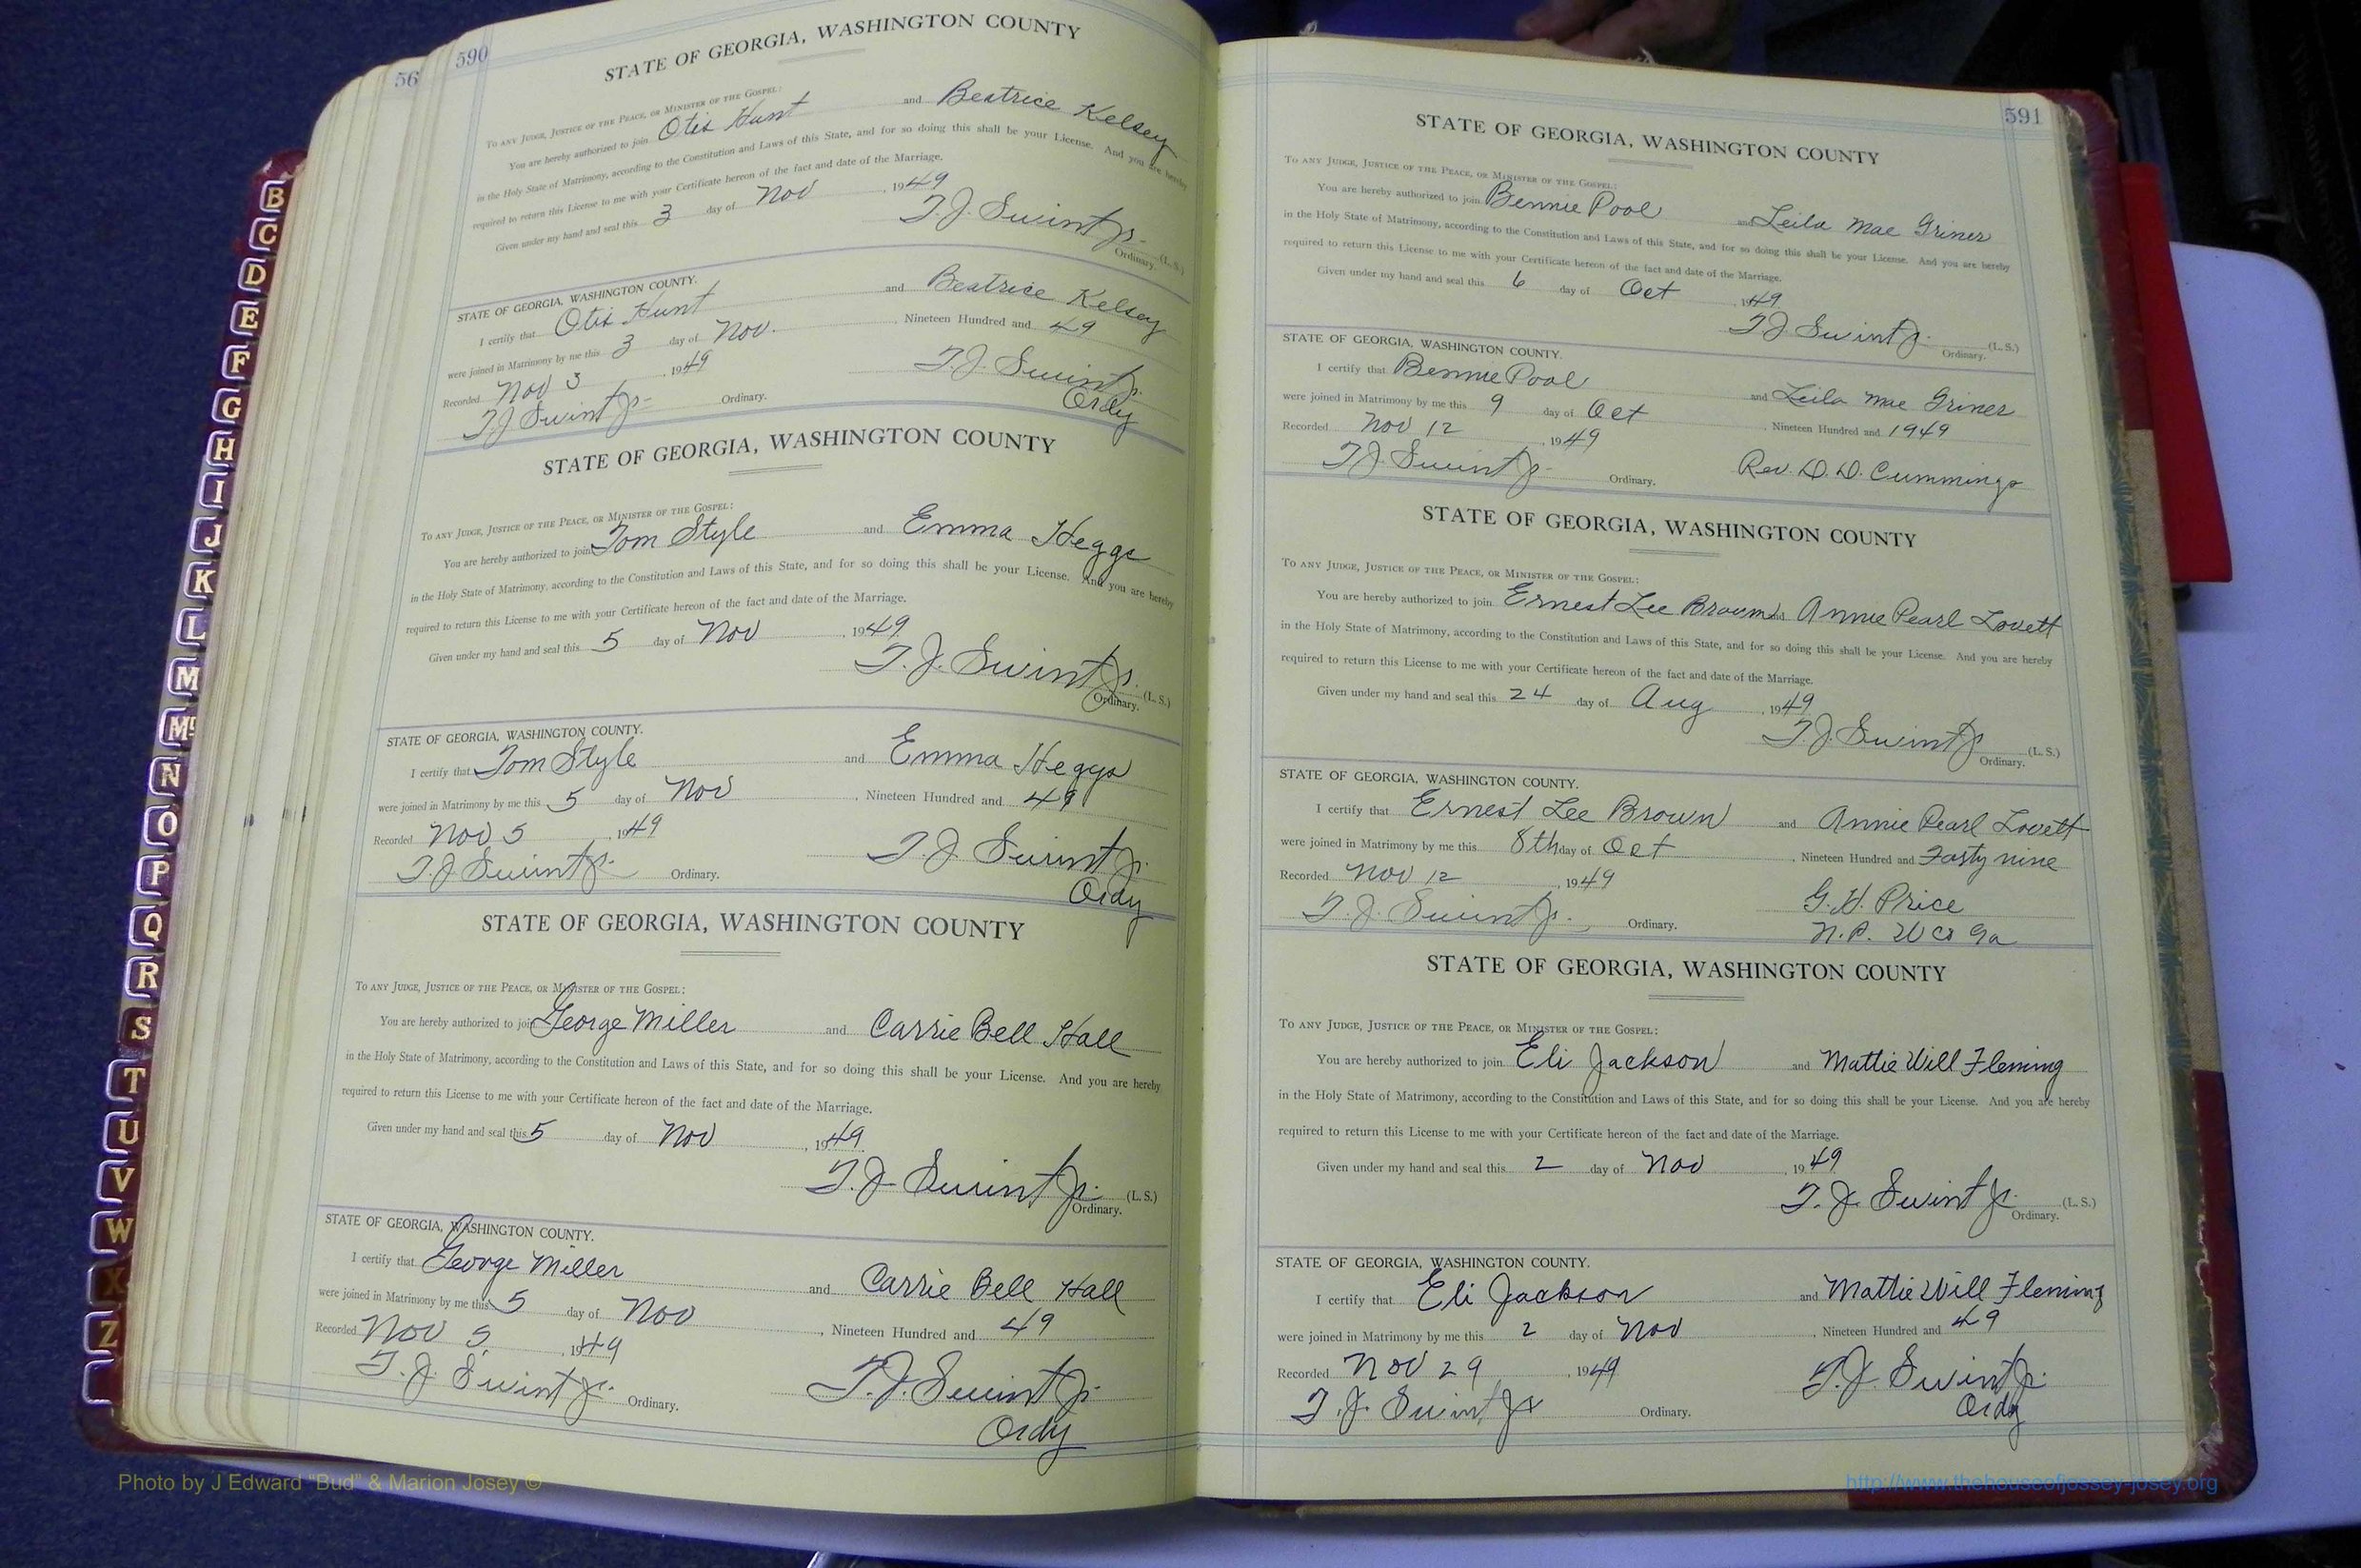 B
C
D
E
F
G
H
I
J
K
L
M
Mc
N
O
P
Q
R
S
T
U
V
W
X
Z
56
590
STATE OF GEORGIA, WASHINGTON COUNTY
To any Judge, Justice of the Peace, or Minister of the Gospel:
You are hereby authorized to join Otis Hunt and Beatrice Kelsey
in the Holy State of Matrimony, according to the Constitution and Laws of this State, and for so doing this shall be your License. And you are hereby
required to return this License to me with your Certificate hereon of the fact and date of the Marriage.
Given under my hand and seal this 3 day of Nov, 1949
T. J. Swint Jr. (L. S.)
Ordinary.
STATE OF GEORGIA, WASHINGTON COUNTY.
I certify that Otis Hunt and Beatrice Kelsey
were joined in Matrimony by me this 3 day of Nov., Nineteen Hundred and 49
Recorded Nov 3, 1949 T. J. Swint Jr.
T J Swint Jr- Ordinary. Ordy
STATE OF GEORGIA, WASHINGTON COUNTY
To any Judge, Justice of the Peace, or Minister of the Gospel:
You are hereby authorized to join Tom Style and Emma Heggs
in the Holy State of Matrimony, according to the Constitution and Laws of this State, and for so doing this shall be your License. And you are hereby
required to return this License to me with your Certificate hereon of the fact and date of the Marriage.
Given under my hand and seal this 5 day of Nov, 1949
T. J. Swint Jr. (L. S.)
Ordinary.
STATE OF GEORGIA, WASHINGTON COUNTY.
I certify that Tom Style and Emma Heggs
were joined in Matrimony by me this 5 day of Nov, Nineteen Hundred and 49
Recorded Nov 5, 1949 T. J. Swint Jr.
T. J. Swint Jr. Ordinary. Ordy
STATE OF GEORGIA, WASHINGTON COUNTY
To any Judge, Justice of the Peace, or Minister of the Gospel:
You are hereby authorized to join George Miller and Carrie Bell Hall
in the Holy State of Matrimony, according to the Constitution and Laws of this State, and for so doing this shall be your License. And you are hereby
required to return this License to me with your Certificate hereon of the fact and date of the Marriage.
Given under my hand and seal this 5 day of Nov, 1949
T. J. Swint Jr. (L. S.)
Ordinary.
STATE OF GEORGIA, WASHINGTON COUNTY.
I certify that George Miller and Carrie Bell Hall
were joined in Matrimony by me this 5 day of Nov, Nineteen Hundred and 49
Recorded Nov 5, 1949 T. J. Swint Jr.
T. J. Swint Jr. Ordinary. Ordy
591
STATE OF GEORGIA, WASHINGTON COUNTY
To any Judge, Justice of the Peace, or Minister of the Gospel:
You are hereby authorized to join Bennie Pool and Leila Mae Griner
in the Holy State of Matrimony, according to the Constitution and Laws of this State, and for so doing this shall be your License. And you are hereby
required to return this License to me with your Certificate hereon of the fact and date of the Marriage.
Given under my hand and seal this 6 day of Oct, 1949
T J Swint Jr. (L. S.)
Ordinary.
STATE OF GEORGIA, WASHINGTON COUNTY.
I certify that Bennie Pool and Leila Mae Griner
were joined in Matrimony by me this 9 day of Oct, Nineteen Hundred and 1949
Recorded Nov 12, 1949
T J Swint Jr- Ordinary. Rev. D. D. Cummings
STATE OF GEORGIA, WASHINGTON COUNTY
To any Judge, Justice of the Peace, or Minister of the Gospel:
You are hereby authorized to join Ernest Lee Brown and Annie Pearl Lovett
in the Holy State of Matrimony, according to the Constitution and Laws of this State, and for so doing this shall be your License. And you are hereby
required to return this License to me with your Certificate hereon of the fact and date of the Marriage.
Given under my hand and seal this 24 day of Aug, 1949
T. J. Swint Jr (L. S.)
Ordinary.
STATE OF GEORGIA, WASHINGTON COUNTY.
I certify that Ernest Lee Brown and Annie Pearl Lovett
were joined in Matrimony by me this 8th day of Oct, Nineteen Hundred and Forty nine
Recorded Nov 12, 1949 G. H. Price
T. J. Swint Jr. Ordinary. N. P. W Co Ga
STATE OF GEORGIA, WASHINGTON COUNTY
To any Judge, Justice of the Peace, or Minister of the Gospel:
You are hereby authorized to join Eli Jackson and Mattie Will Fleming
in the Holy State of Matrimony, according to the Constitution and Laws of this State, and for so doing this shall be your License. And you are hereby
required to return this License to me with your Certificate hereon of the fact and date of the Marriage.
Given under my hand and seal this 2 day of Nov, 1949
T. J. Swint Jr. (L. S.)
Ordinary.
STATE OF GEORGIA, WASHINGTON COUNTY.
I certify that Eli Jackson and Mattie Will Fleming
were joined in Matrimony by me this 2 day of Nov, Nineteen Hundred and 49
Recorded Nov 29, 1949 T. J. Swint Jr.
T. J. Swint Jr Ordinary. Ordy
Photo by J Edward "Bud" & Marion Josey ©
http://www.thehouseofjossey-josey.org